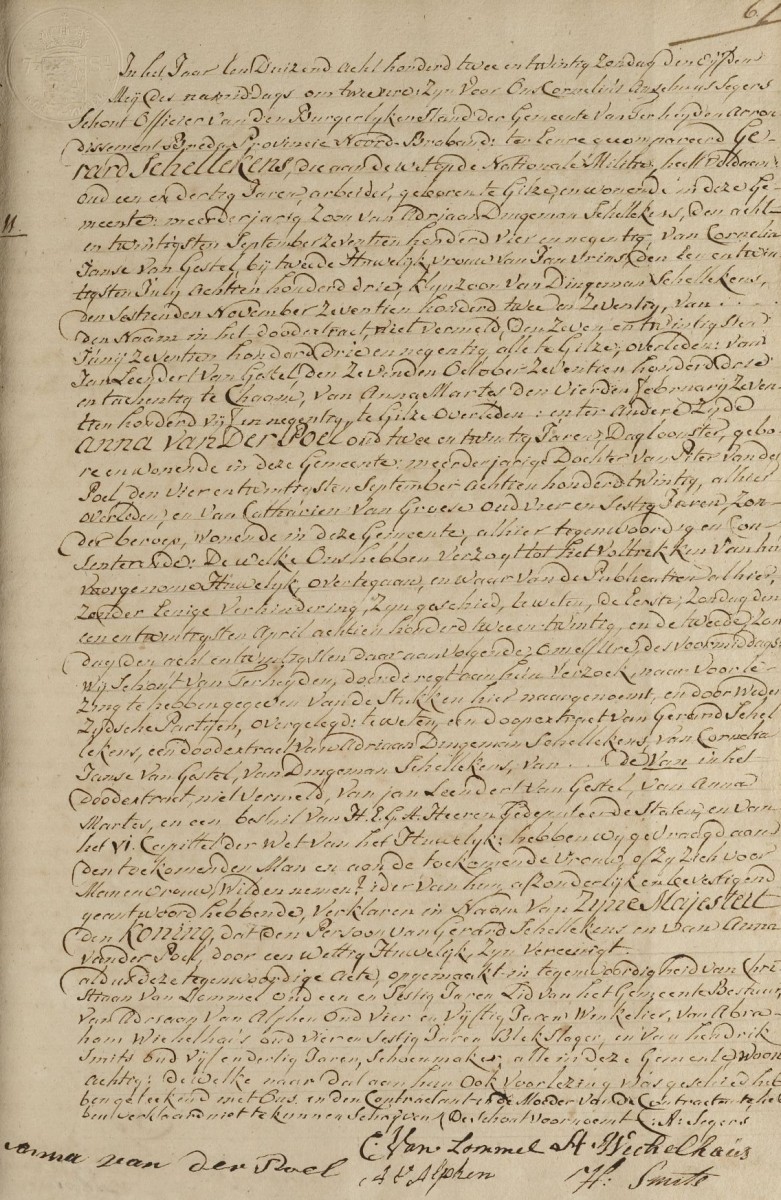 6
In het Jaar een Duizend acht honderd twee en twintig Zondag den Vyfden
Mey des namiddags om twee ure: Zyn Voor Ons Cornelis Anselmus Segers
Schout Officier van den Burgerlyken Stand der Gemeente Van Terheyden Arron
dissement Breda, Provincie Noord-Braband: ter Eenre gecompareerd GE-
RARD SCHELLEKENS, die aan de wet op de Nationale Militie, heeft voldaan:
oud een en dertig Jaren, arbeider, geboren te Gilze, en wonende in deze Ge-
meente: meerderjarig Zoon van Adriaan Dingeman Schellekens, den acht-
11
en twintigsten September Zeventien honderd vier en negentig, van Cornelia
Janse Van Gestel, bij tweede Huwelyk vrouw van Jan Vrins, den Een en twin
tigsten July Achttien honderd drie, klynzoon Van Dingeman Schellekens,
den Sestienden November Zeventien honderd twee en Zeventig, van ......
den Naam in het doodextract, niet vermeld, den Zeven en twintigsten
Junij Zeventien honderd drie en negentig, alle te Gilze, overleden: van
Jan Leendert van Gestel, den Zevenden October Zeventien honderd drie
en tachentig te Chaam, van Anna Martes den Vierden February Zeven-
tien honderd vyf en negentig, te Gilze overleden: en ter Andere Zyde
ANNA VAN DER POEL oud twee en twintig Jaren, Dagloonster, gebo-
re en wonende in deze Gemeente: meerderjarige Dochter van Peter van der
Poel den vier en twintigsten September Achttien honderd twintig, alhier
overleden, en van Catharien Van Groese oud vier en Sestig Jaren, Zon-
der beroep, wonende in deze Gemeente, alhier tegenwoordig en Con-
senterende: De welke Ons hebben Verzogt tot het Voltrekken van hun
voorgenomen Huwelyk, overtegaan, en waar van de Publicatien alhier,
Zonder Eenige Verhindering, Zyn geschied, te weten, de Eerste, Zondag den
een en twintigsten April achttien honderd twee en twintig, en de tweede, Zon-
dag den acht en twintigsten daar aan volgende, om elf ure, des voormiddags
Wij Schout van Terheyden, doende regt aan hun Verzoek, naar Voorle-
Zing te hebben gegeven van de Stukken hier naargenoemt, en door Weder
Zydsche Partijen, overgelegd: te weten, een doopextract van Gerard Schel
lekens, een doodextract van Adriaan Dingeman Schellekens, van Cornelia
Janse van Gestel, van Dingeman Schellekens, van .... de Nam in het
doodextract, niet vermeld, van Jan Leendert van Gestel, van Anna
Martes, en een besluit van H: E: G: A: Heeren Gedeputeerde Staten, en van
het VI. Capittel der Wet van het Huwelyk; hebben wy gevraagd aan
den toekomenden Man en aan de toekomende Vrouw, of Zy Zich voor
Man en Vrouw, Wilden nemen? ider van hun afzonderlyk en bevestigend
geantwoord hebbende, verklaren in Naam van Zyne Majesteit
den KONING, dat den Persoon van Gerard Schellekens en van Anna
vander Poel, door een Wettig Huwelyk, Zyn Vereenigt
aldus deze tegenwoordige acte, opgemaakt in tegenwoordigheid van Chri
Staan van Lommel oud een en Sestig Jaren Lid van het Gemeente Bestuur,
van Adriaan Van Alphen oud Vier en Vyftig Jaren Winkelier, van Abra-
ham Wichelhaus oud vier en Sestig Jaren Blekslager, en van hendrik
Smits oud vyf en dertig Jaren, Schoenmaker, alle in deze Gemente, woon
Achtig; De welke naar dat aan hun ook Voorlezing was geschied heb
ben geteekend met Ons, en den Contractant en de Moeder van de Contractante, heb
ben verklaard niet te kunnen Schryven, De Schout Voornoemt C: A: Segers
anna van der Poel C. Van Lommel A Wichelhaus
A V Alphen H: Smits